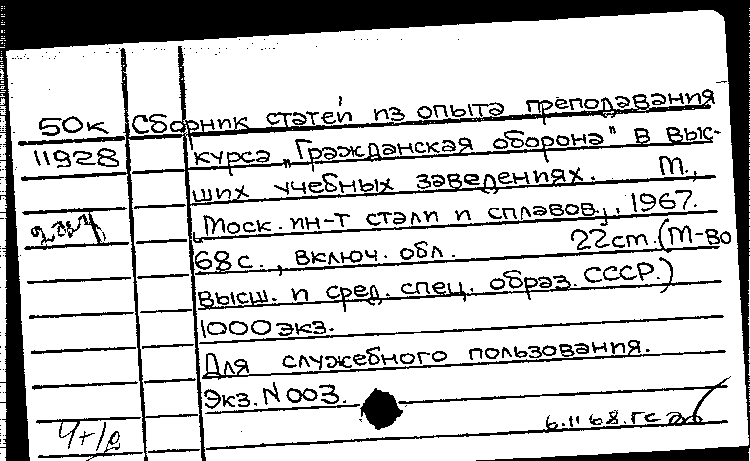 50к Сборник статей из опыта преподавания
11928 курса „Гражданская оборона" в выс-
ших учебных заведениях. М.,
[Моск. ин-т стали и сплавов], 1967.
68 с., включ. обл. 22 см. (М-во
высш. и сред. спец. образ. СССР.)
1000 экз.
Для служебного пользования.
Экз. N 003.
6.11 68.